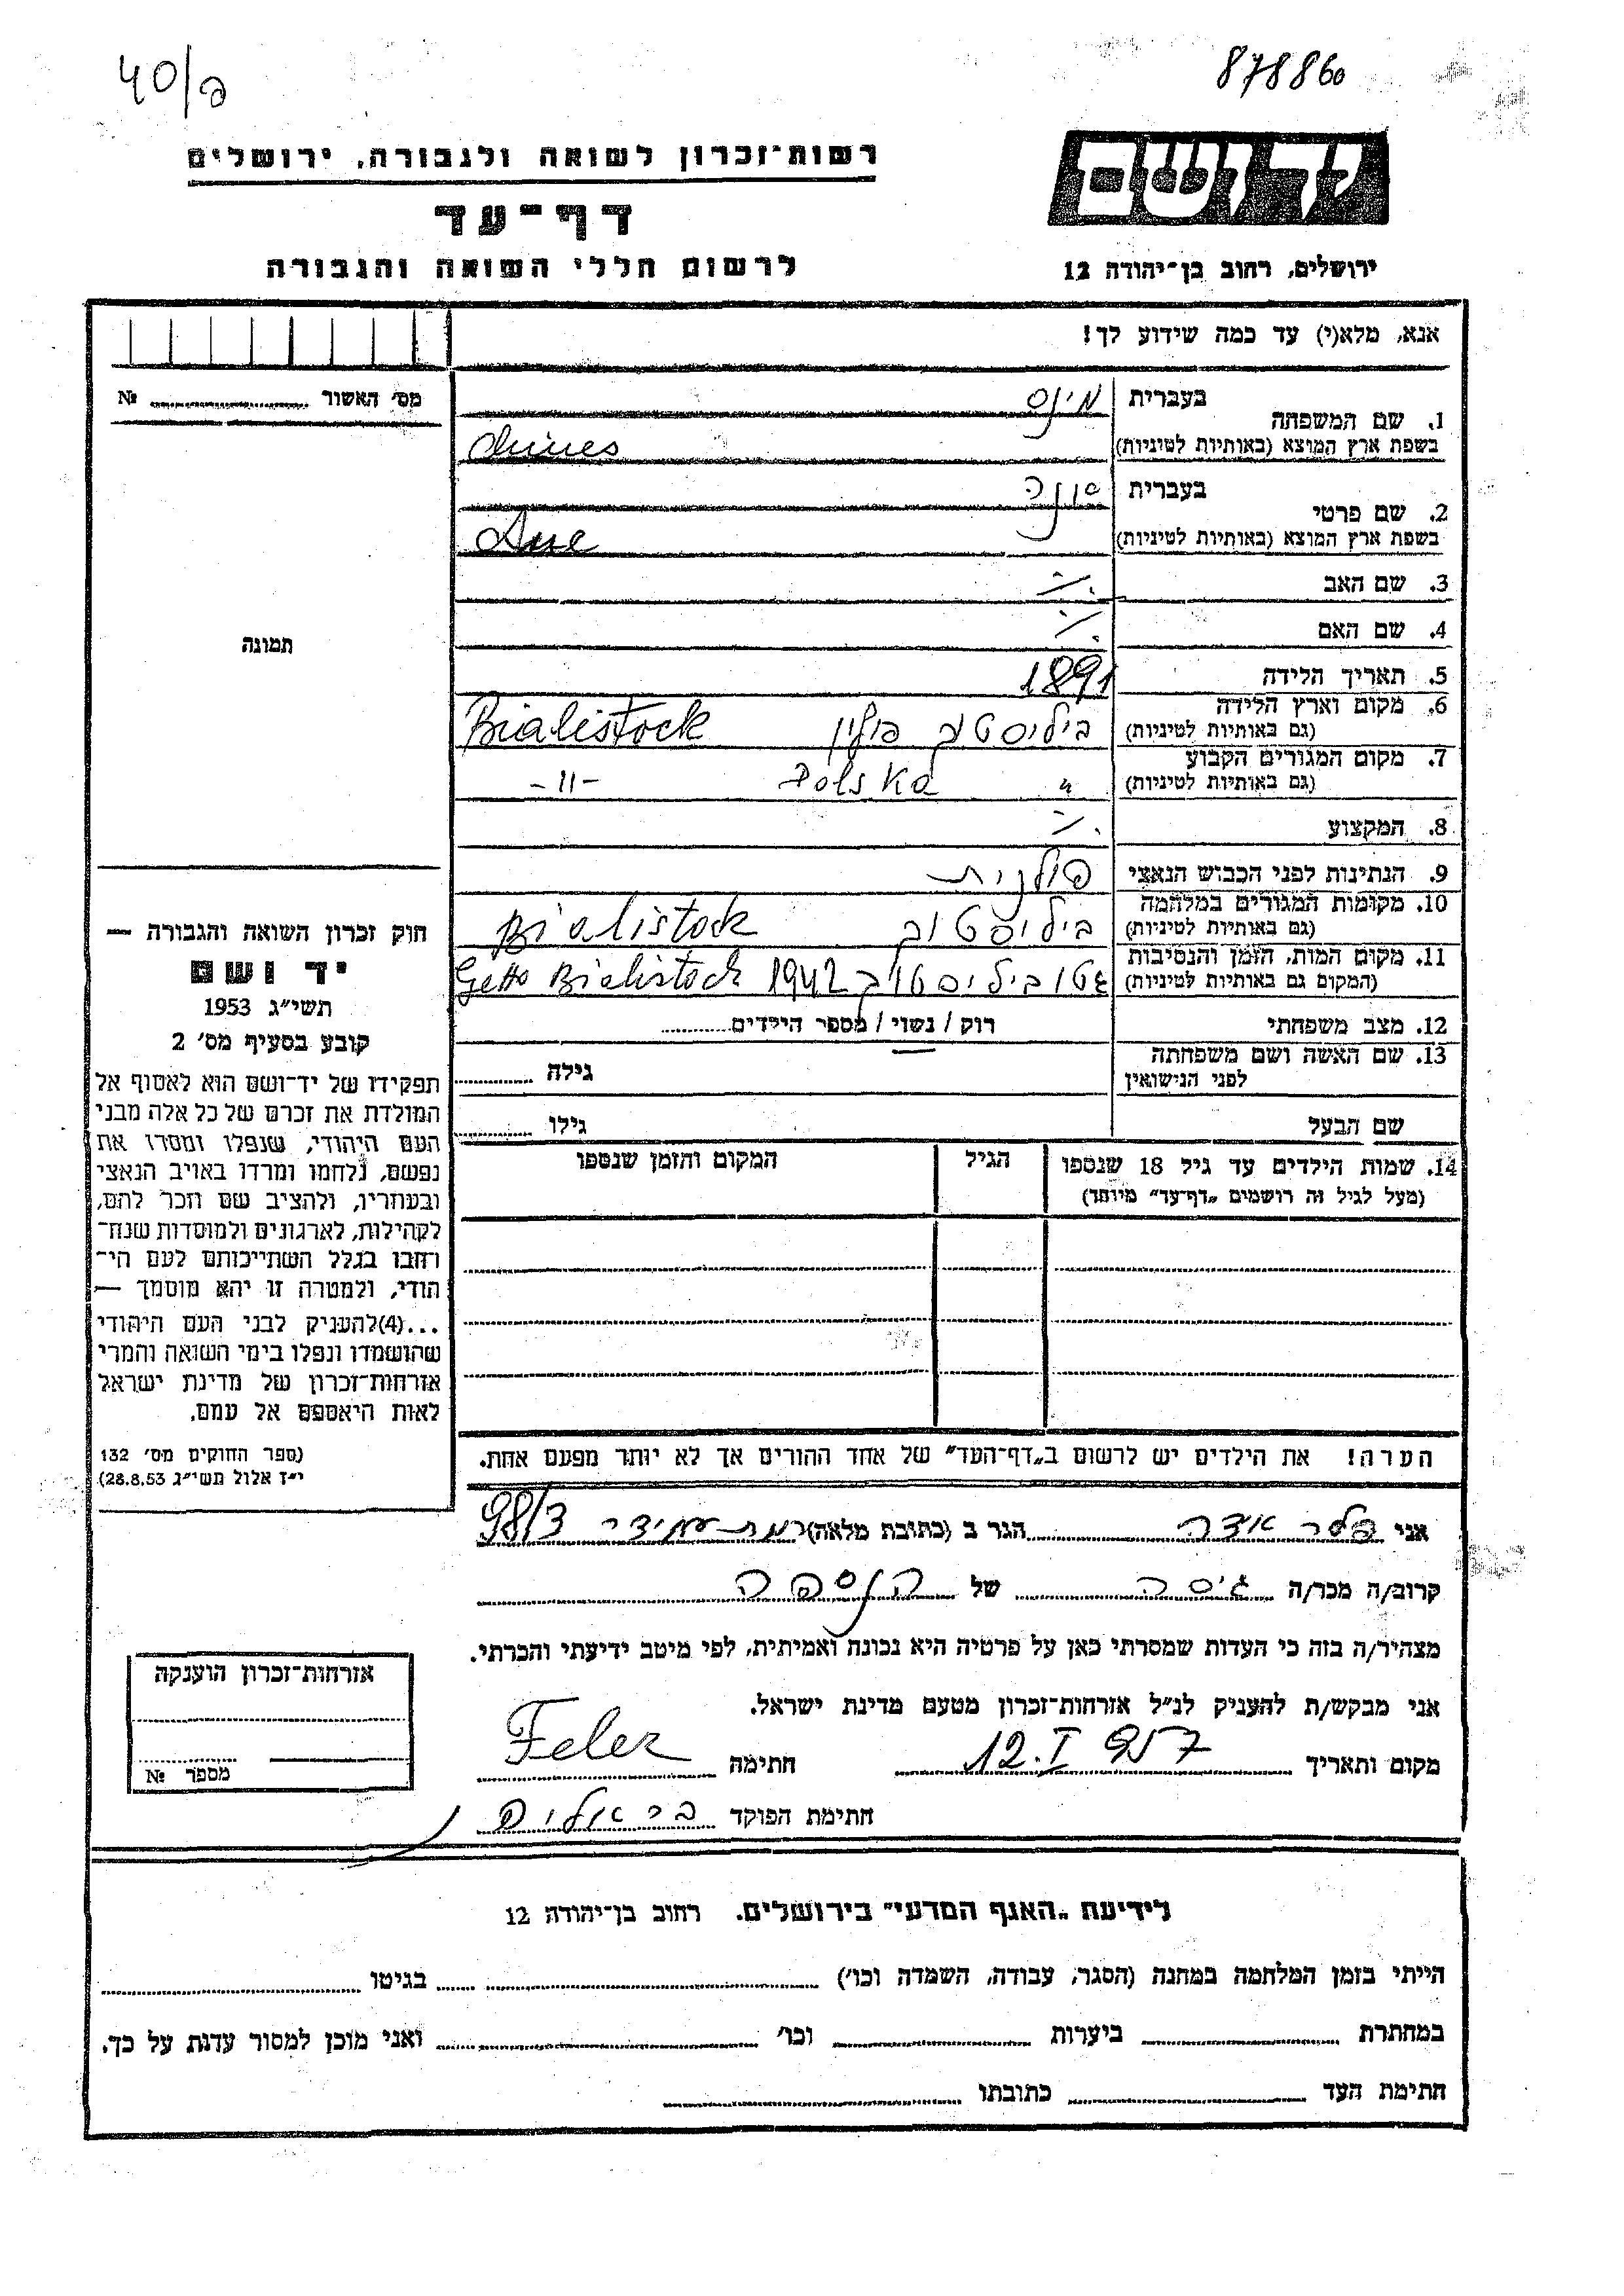 40/פ
878860
רשות־זכרון לשואה ולגבורה, ירושלים
דף־עד
לרשום חללי השואה והגבורה
יד ושם
ירושלים, רחוב בן־יהודה 12
אנא, מלא(י) עד כמה שידוע לך!
מס׳ האשור № 
1. שם המשפחה
בעברית
בשפת ארץ המוצא (באותיות לטיניות)
2. שם פרטי
בעברית
בשפת ארץ המוצא (באותיות לטיניות)
3. שם האב ./.
4. שם האם ./.
5. תאריך הלידה 1891
6. מקום וארץ הלידה
(גם באותיות לטיניות) ביליסטק פולין Bialistock
7. מקום המגורים הקבוע
(גם באותיות לטיניות) " Polska -״-
8. המקצוע ./.
9. הנתינות לפני הכבוש הנאצי פולנית
10. מקומות המגורים במלחמה
(גם באותיות לטיניות) ביליסטוק Bialistock
11. מקום המות, הזמן והנסיבות
(המקום גם באותיות לטיניות) גטו ביליסטוק 1942 Getto Bialistock
12. מצב משפחתי רוק / נשוי / מספר הילדים
13. שם האשה ושם משפחתה
לפני הנישואין גילה
שם הבעל גילו
14. שמות הילדים עד גיל 18 שנספו
(מעל לגיל זה רושמים „דף־עד״ מיוחד)
הגיל
המקום והזמן שנספו
הערה! את הילדים יש לרשום ב„דף־העד״ של אחד ההורים אך לא יותר מפעם אחת.
תמונה
חוק זכרון השואה והגבורה —
יד ושם
תשי״ג 1953
קובע בסעיף מס׳ 2
תפקידו של יד־ושם הוא לאסוף אל
המולדת את זכרם של כל אלה מבני
העם היהודי, שנפלו ומסרו את
נפשם, נלחמו ומרדו באויב הנאצי
ובעוזריו, ולהציב שם וזכר להם,
לקהילות, לארגונים ולמוסדות שנח־
רחבו בגלל השתייכותם לעם הי־
הודי, ולמטרה זו יהא מוסמך —
...(4)להעניק לבני העם היהודי
שהושמדו ונפלו בימי השואה והמרי
אזרחות־זכרון של מדינת ישראל
לאות היאספם אל עמם.
(ספר החוקים מס׳ 132
י״ז אלול תשי״ג 28.8.53)
אני פלר אידה הגר ב (כתובת מלאה) רמת עמידר 98/3
קרוב/ה מכר/ה גיסה של הנספה
מצהיר/ה בזה כי העדות שמסרתי כאן על פרטיה היא נכונה ואמיתית, לפי מיטב ידיעתי והכרתי.
אני מבקש/ת להעניק לנ״ל אזרחות־זכרון מטעם מדינת ישראל.
מקום ותאריך 12.I 957 חתימה Feler
חתימת הפוקד
אזרחות־זכרון הוענקה
מספר №
לידיעת „האגף המדעי״ בירושלים. רחוב בן־יהודה 12
הייתי בזמן המלחמה במחנה (הסגר, עבודה, השמדה וכו׳) בגיטו
במחתרת ביערות וכו׳ ואני מוכן למסור עדות על כך.
חתימת העד כתובתו